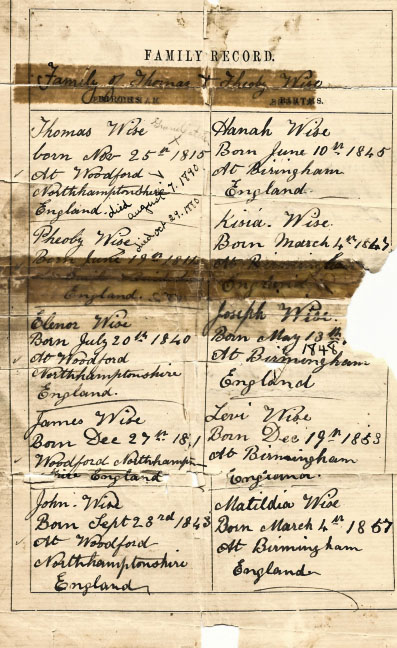 FAMILY RECORD.
Family of Thomas & Pheoby Wise
BIRTHS.
Thomas Wise
born Nov 25th 1815
At Woodford
Northhamptonshire
England
died august 7. 1890
Pheoby Wise
died oct 29. 1880
Born June 18th
England
Elenor Wise
Born July 20th 1840
At Woodford
Northhamptonshire
England.
James Wise
Born Dec 27th
Woodford Northhampton
shire England
John. Wise
Born Sept 23rd 1843
At Woodford
Northhamptonshire
England
BIRTHS.
Hanah Wise
Born June 10th 1845
At Biringham
England
Kisia. Wise
Born March 4th 1847
At
Joseph Wise.
Born May 13th
1848
At Birmingham
England
Levi Wise
Born Dec 19th 1853
At Birmingham
England.
Matildia Wise
Born March 4th 1857
At Birmingham
England